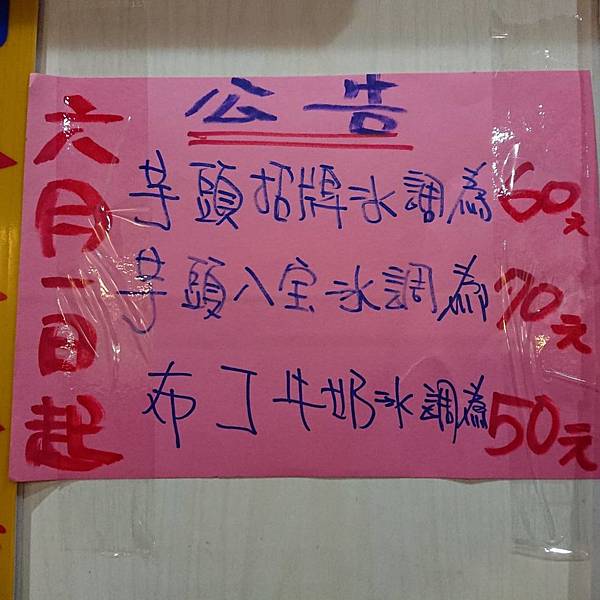 公告
六月一日起
芋頭招牌冰調為60元
芋頭八宝冰調為70元
布丁牛奶冰調為50元